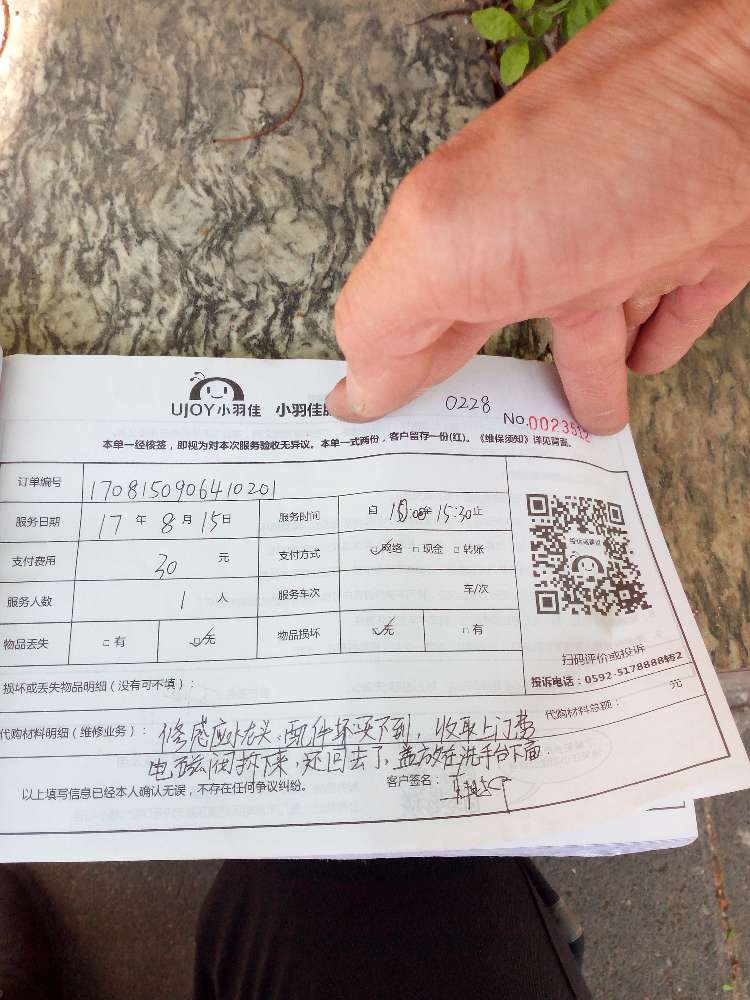 UJOY小羽佳 小羽佳
0228
No.00235
本单一经核签，即视为对本次服务验收无异议。本单一式两份，客户留存一份(红)。《维保须知》详见背面。
订单编号 1708150906410201
服务日期 17 年 8 月 15 日 服务时间 自 至 15:30 止
支付费用 30 元 支付方式 ☑网络 □现金 □转账
服务人数 1 人 服务车次 车/次
物品丢失 □有 ☑无 物品损坏 ☑无 □有
投诉或建议
扫码评价或投诉
投诉电话：0592-5178888转2
损坏或丢失物品明细（没有可不填）：
代购材料总额： 元
代购材料明细（维修业务）： 修感应水龙头，配件坏买不到，收取上门费
电磁阀拆下来，还回去了，盖放在洗手台下面
以上填写信息已经本人确认无误，不存在任何争议纠纷。 客户签名：